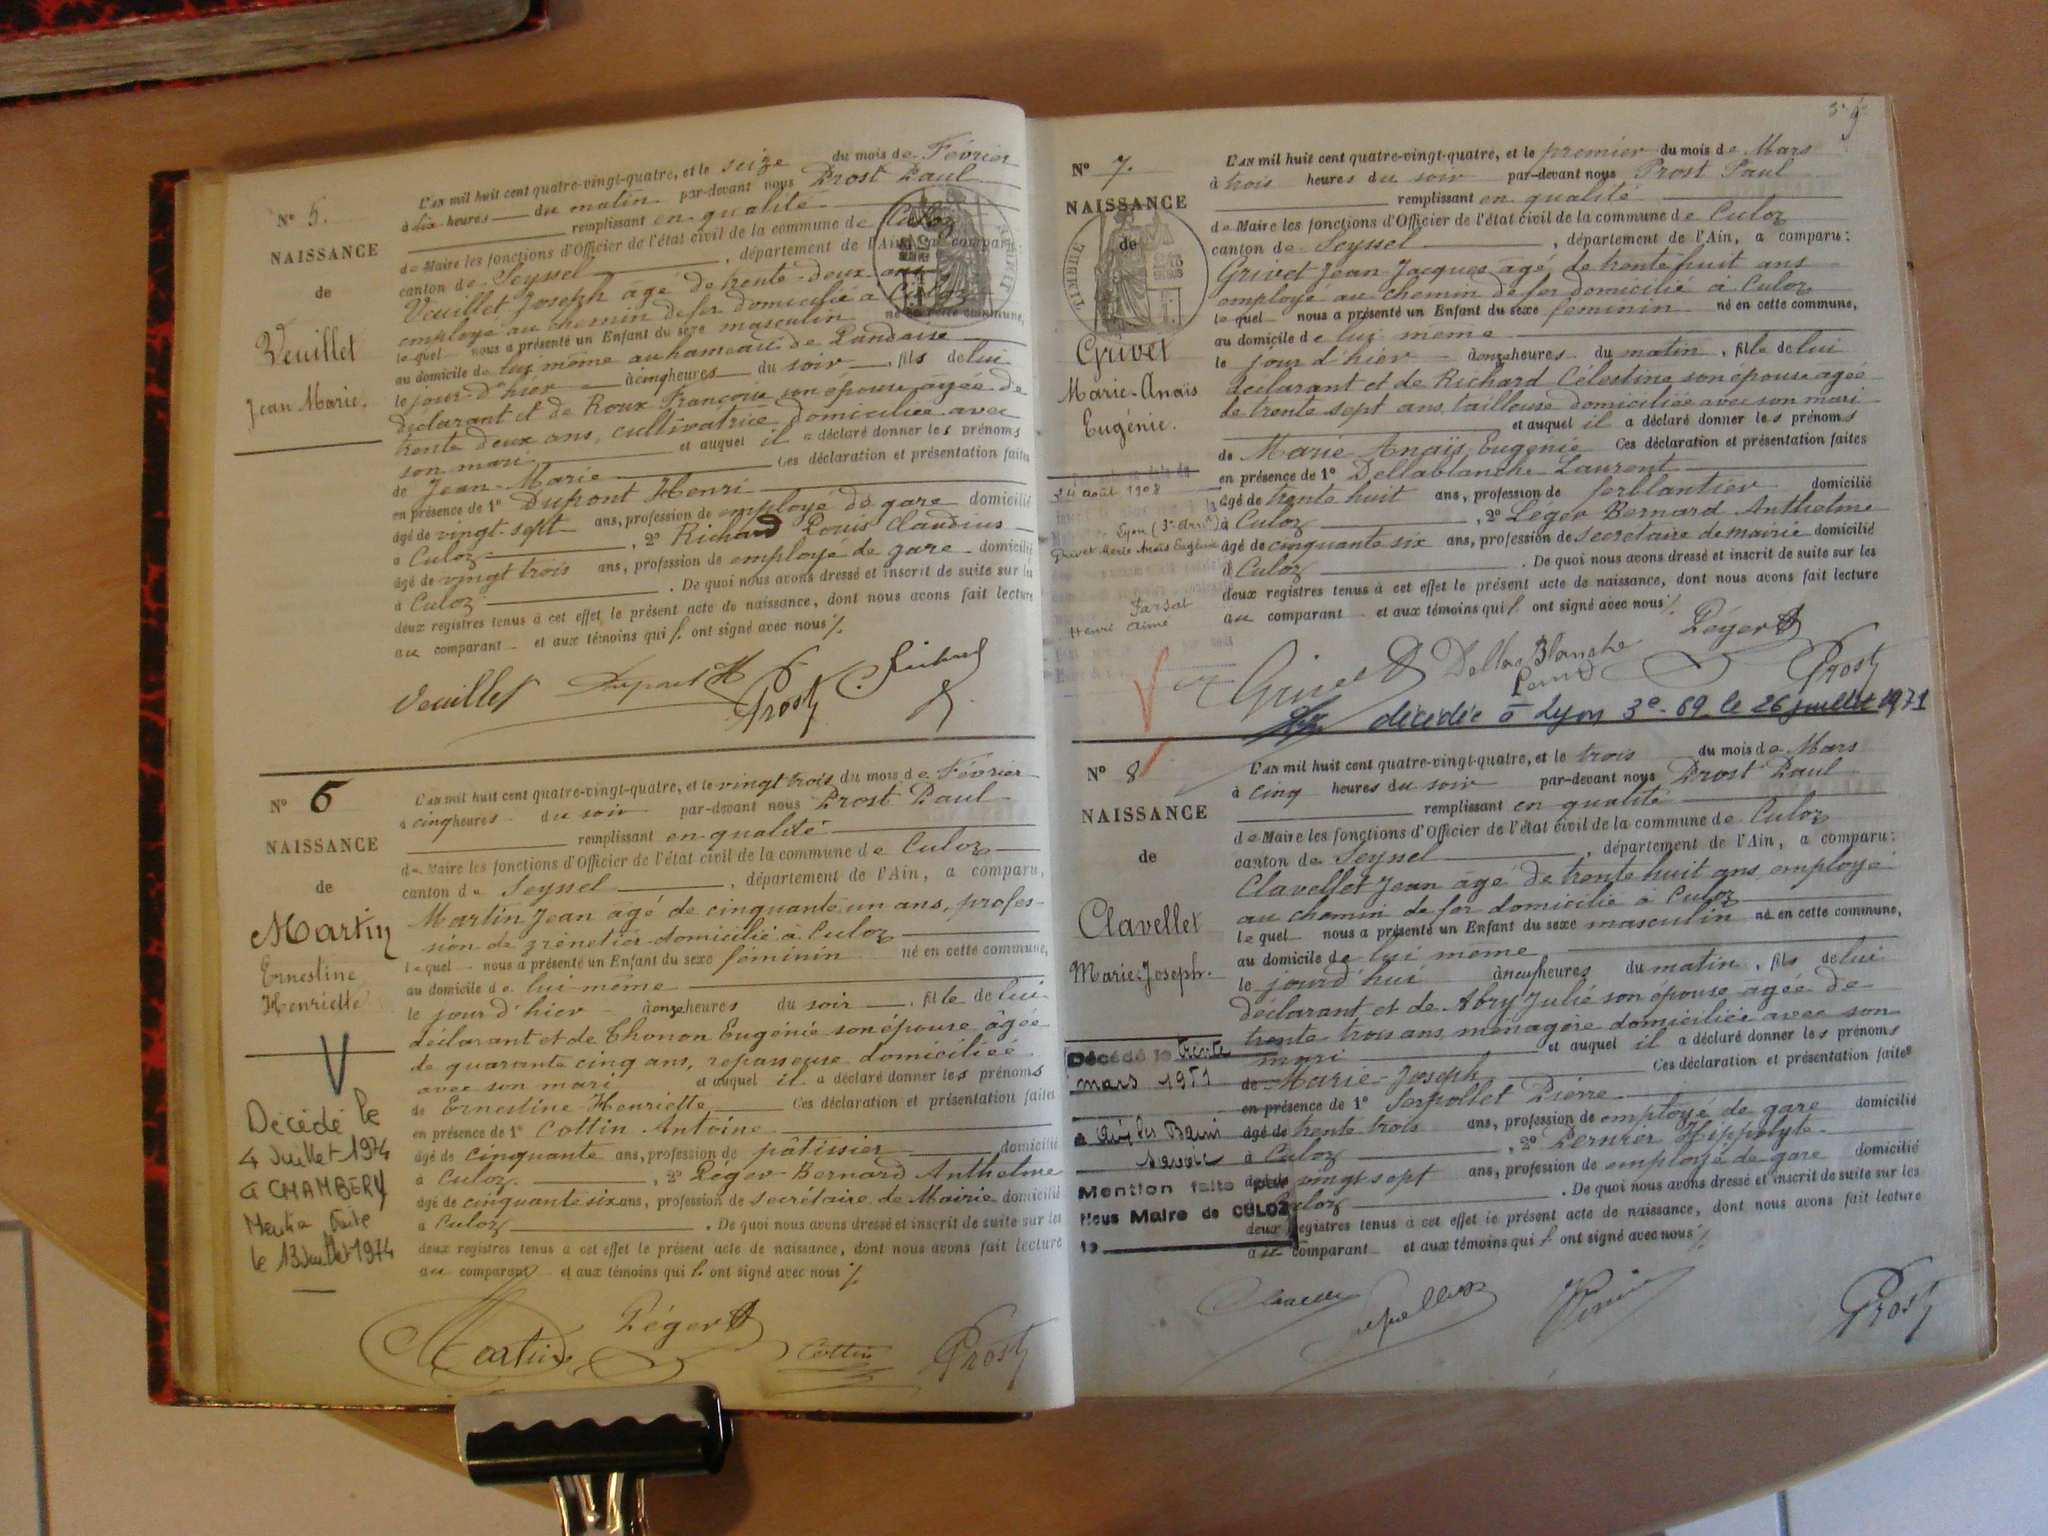 Nº 5.
NAISSANCE
de
Veuillet
Jean Marie.
L'AN mil huit cent quatre-vingt-quatre, et le seize du mois de Février
à dix heures du matin par-devant nous Prost Paul
remplissant en qualité
de Maire les fonctions d'Officier de l'état civil de la commune de Culoz
canton de Seyssel, département de l'Ain, a comparu
Veuillet Joseph âgé de trente-deux ans
employé au chemin de fer domicilié à Culoz
lequel nous a présenté un Enfant du sexe masculin né en cette commune,
au domicile de lui même au hameau de Landaise
le jour d'hier à cinq heures du soir, fils de lui
déclarant et de Roux Françoise son épouse âgée de
trente deux ans, cultivatrice domiciliée avec
son mari et auquel il a déclaré donner les prénoms
de Jean-Marie Ces déclaration et présentation faites
en présence de 1º Dupont Henri
âgé de vingt-sept ans, profession de employé de gare domicilié
à Culoz, 2º Richard Louis Claudius
âgé de vingt trois ans, profession de employé de gare domicilié
à Culoz. De quoi nous avons dressé et inscrit de suite sur les
deux registres tenus à cet effet le présent acte de naissance, dont nous avons fait lecture
au comparant et aux témoins qui l. ont signé avec nous
Veuillet Dupont H Prost C. Richard
Nº 6
NAISSANCE
de
Martin
Ernestine
Henriette
V
Décédé le
4 Juillet 1974
à CHAMBERY
Mention faite
le 13 Juillet 1974
L'AN mil huit cent quatre-vingt-quatre, et le vingt trois du mois de Février
à cinq heures du soir par-devant nous Prost Paul
remplissant en qualité
de Maire les fonctions d'Officier de l'état civil de la commune de Culoz
canton de Seyssel, département de l'Ain, a comparu,
Martin Jean âgé de cinquante un ans, profes-
sion de grènetier domicilié à Culoz
lequel nous a présenté un Enfant du sexe féminin né en cette commune,
au domicile de lui-même
le jour d'hier à onze heures du soir, fille de lui
déclarant et de Thonon Eugénie son épouse âgée
de quarante cinq ans, repasseuse domiciliée
avec son mari et auquel il a déclaré donner les prénoms
de Ernestine Henriette Ces déclaration et présentation faites
en présence de 1º Cottin Antoine
âgé de cinquante ans, profession de pâtissier domicilié
à Culoz., 2º Léger Bernard Anthelme
âgé de cinquante six ans, profession de secrétaire de Mairie domicilié
à Culoz. De quoi nous avons dressé et inscrit de suite sur les
deux registres tenus à cet effet le présent acte de naissance, dont nous avons fait lecture
au comparant et aux témoins qui l. ont signé avec nous
Martin Léger Cottin Prost
Nº 7.
NAISSANCE
de
TIMBRE
Grivet
Marie-Anaïs
Eugénie.
24 août 1908
Lyon (3e Arrt)
Grivet Marie Anaïs Eugénie
Farsat
Henri Aimé
L'AN mil huit cent quatre-vingt-quatre, et le premier du mois de Mars
à trois heures du soir par-devant nous Prost Paul
remplissant en qualité
de Maire les fonctions d'Officier de l'état civil de la commune de Culoz
canton de Seyssel, département de l'Ain, a comparu:
Grivet Jean-Jacques âgé de trente huit ans
employé au chemin de fer domicilié à Culoz
lequel nous a présenté un Enfant du sexe féminin né en cette commune,
au domicile de lui même
le jour d'hier à onze heures du matin, fille de lui
déclarant et de Richard Célestine son épouse âgée
de trente sept ans, tailleuse domiciliée avec son mari
et auquel il a déclaré donner les prénoms
de Marie Anaïs Eugénie Ces déclaration et présentation faites
en présence de 1º Dellablanche Laurent
âgé de trente huit ans, profession de ferblantier domicilié
à Culoz, 2º Léger Bernard Anthelme
âgé de cinquante six ans, profession de secrétaire de mairie domicilié
à Culoz. De quoi nous avons dressé et inscrit de suite sur les
deux registres tenus à cet effet le présent acte de naissance, dont nous avons fait lecture
au comparant et aux témoins qui l. ont signé avec nous
Grivet Della Blanche Léger Prost
décédée à Lyon 3e - 69 le 26 juillet 1971
Nº 8
NAISSANCE
de
Clavellet
Marie-Joseph.
Décédé le trente
mars 1951
à Aix les Bains
Savoie
Mention faite par
Nous Maire de CULOZ
L'AN mil huit cent quatre-vingt-quatre, et le trois du mois de Mars
à cinq heures du soir par-devant nous Prost Paul
remplissant en qualité
de Maire les fonctions d'Officier de l'état civil de la commune de Culoz
canton de Seyssel, département de l'Ain, a comparu:
Clavellet Jean âgé de trente huit ans, employé
au chemin de fer domicilié à Culoz
lequel nous a présenté un Enfant du sexe masculin né en cette commune,
au domicile de lui même
le jourd'hui à neuf heures du matin, fils de lui
déclarant et de Abry Julie son épouse âgée de
trente trois ans, ménagère domiciliée avec son
mari et auquel il a déclaré donner les prénoms
de Marie-Joseph Ces déclaration et présentation faites
en présence de 1º Serpollet Pierre
âgé de trente trois ans, profession de employé de gare domicilié
à Culoz, 2º Pernier Hippolyte
âgé de vingt sept ans, profession de employé de gare domicilié
à Culoz. De quoi nous avons dressé et inscrit de suite sur les
deux registres tenus à cet effet le présent acte de naissance, dont nous avons fait lecture
au comparant et aux témoins qui l. ont signé avec nous
Prost